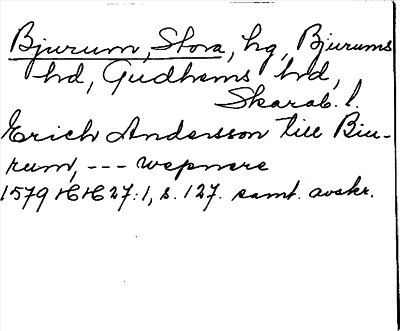 Bjurum, Stora, hg, Bjurums
hd, Gudhems hd,
Skarab. l.
Erich Andersson till Biu-
rum, --- wepnere
1579 HH 27:1, s. 127. samt. avskr.